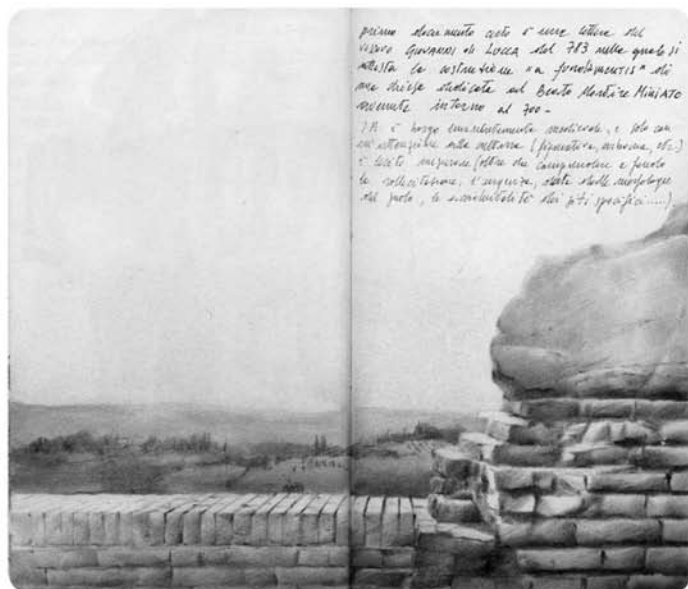 primo documento certo è una lettera del
vescovo GIOVANNI di LUCCA del 783 nella quale si
attesta la costruzione "a fondamentis" di
una chiesa dedicata al Beato Martire MINIATO
avvenuta intorno al 700 -
è borgo eminentemente medievale, e solo con
un'attenzione alla (figurativa, urbana, etc.)
è lecito (oltre che comprendere a fondo
la sollecitazione, l'urgenza, data dalla morfologia
del suolo, la dei siti specifici.....)